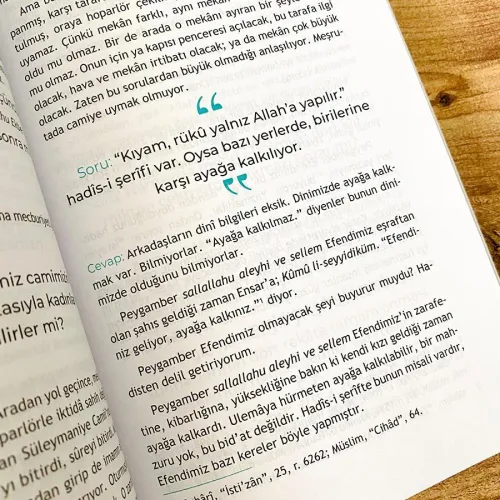 Ama b
panmış, karşı taraf
tulmuş, oraya hoparlör çekil
uyamaz. Çünkü mekân farklı, aynı mekân
oldu mu olmaz. Bir de arada o mekânı ayıran bir şey
mu olmaz. Onun için ya kapısı penceresi açılacak, bu tarafa ilgi
olacak, hava ve mekân irtibatı olacak; ya da mekân çok büyük
olacak. Zaten bu sorulardan büyük olmadığı anlaşılıyor. Meşru-
tada camiye uymak olmuyor.
“
Soru: “Kıyam, rükû yalnız Allah'a yapılır.”
hadîs-i şerîfi var. Oysa bazı yerlerde, birilerine
karşı ayağa kalkılıyor.
”
Cevap: Arkadaşların dinî bilgileri eksik. Dinimizde ayağa kalk-
mak var. Bilmiyorlar. “Ayağa kalkılmaz.” diyenler bunun dini-
mizde olduğunu bilmiyorlar.
Peygamber sallallahu aleyhi ve sellem Efendimiz eşraftan
olan şahıs geldiği zaman Ensar'a; Kûmû li-seyyidiküm. “Efendi-
niz geliyor, ayağa kalkınız.”¹ diyor.
Peygamber Efendimiz olmayacak şeyi buyurur muydu? Ha-
disten delil getiriyorum.
Peygamber sallallahu aleyhi ve sellem Efendimiz'in zarafe-
tine, kibarlığına, yüksekliğine bakın ki kendi kızı geldiği zaman
ayağa kalkardı. Ulemâya hürmeten ayağa kalkılabilir, bir mah-
zuru yok, bu bid'at değildir. Hadîs-i şerîfte bunun misali vardır,
Efendimiz bazı kereler böyle yapmıştır.
hârî, “İsti'zân”, 25, r. 6262; Müslim, “Cihâd”, 64.
na mecburiye
niz camimiz
asıyla kadınla
ilirler mi?
Aradan yol geçince, me
parlörle iktidâ sahih
an Süleymaniye Cami
yı bitirdi, sûreyi bitirdi